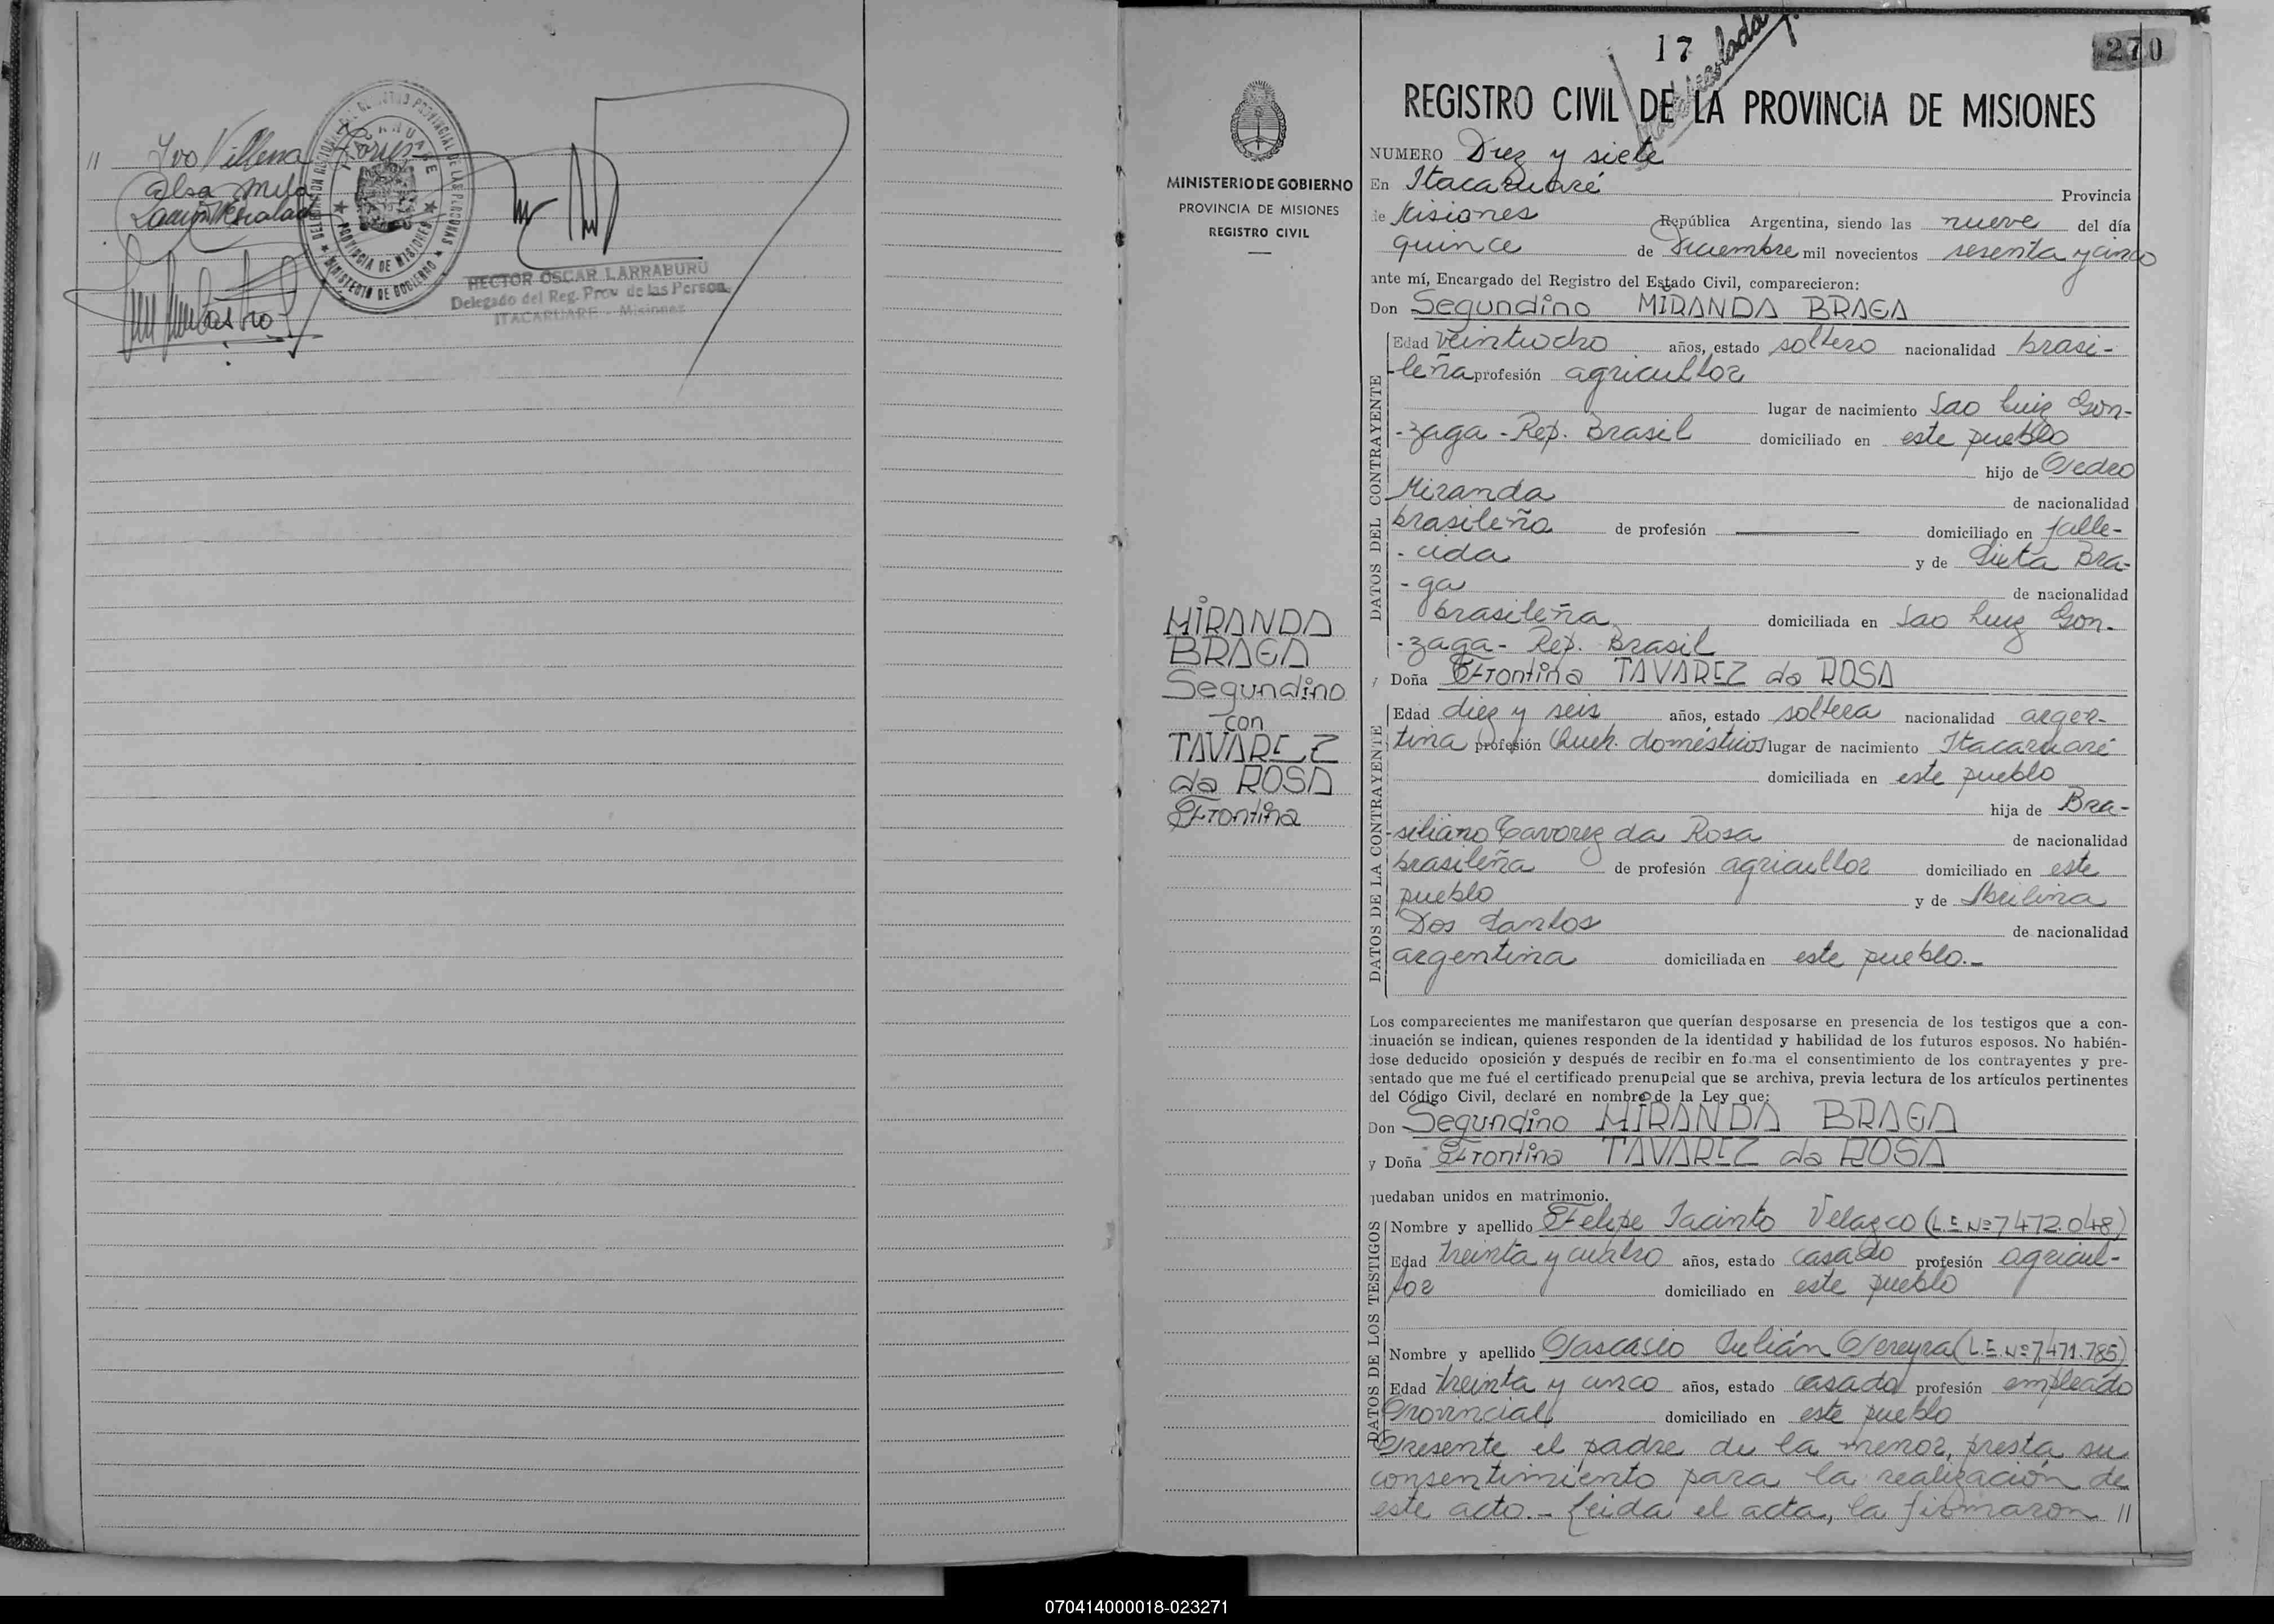 // Ivo Villena
Elsa
HECTOR OSCAR LARRABURU
Delegado del Reg. Prov. de las Person.
ITACARUARE - Misiones
MINISTERIO DE GOBIERNO
PROVINCIA DE MISIONES
REGISTRO CIVIL
MIRANDA
BRAGA
Segundino
con
TAVAREZ
da ROSA
Frontina
17
270
REGISTRO CIVIL DE LA PROVINCIA DE MISIONES
NUMERO Diez y siete
En Itacaruaré Provincia
de Misiones República Argentina, siendo las nueve del día
quince de Diciembre mil novecientos sesenta y cinco
ante mí, Encargado del Registro del Estado Civil, comparecieron:
Don Segundino MIRANDA BRAGA
DATOS DEL CONTRAYENTE
Edad veintiocho años, estado soltero nacionalidad brasi-
leña profesión agricultor
lugar de nacimiento Sao Luiz Gon-
-zaga - Rep. Brasil domiciliado en este pueblo
hijo de Pedro
Miranda de nacionalidad
brasileña de profesión —— domiciliado en falle-
-cida y de Bra-
-ga de nacionalidad
brasileña domiciliada en Sao Luiz Gon-
-zaga - Rep. Brasil
y Doña Frontina TAVAREZ da ROSA
DATOS DE LA CONTRAYENTE
Edad diez y seis años, estado soltera nacionalidad argen-
tina profesión Queh. domésticos lugar de nacimiento Itacaruaré
domiciliada en este pueblo
hija de Bra-
-siliano Tavarez da Rosa de nacionalidad
brasileña de profesión agricultor domiciliado en este
pueblo y de
Dos Santos de nacionalidad
argentina domiciliada en este pueblo.-
Los comparecientes me manifestaron que querían desposarse en presencia de los testigos que a con-
tinuación se indican, quienes responden de la identidad y habilidad de los futuros esposos. No habién-
dose deducido oposición y después de recibir en forma el consentimiento de los contrayentes y pre-
sentado que me fué el certificado prenupcial que se archiva, previa lectura de los artículos pertinentes
del Código Civil, declaré en nombre de la Ley que:
Don Segundino MIRANDA BRAGA
y Doña Frontina TAVAREZ da ROSA
quedaban unidos en matrimonio.
DATOS DE LOS TESTIGOS
Nombre y apellido Felipe Jacinto Velazco (L.E. Nº 7.472.048)
Edad treinta y cuatro años, estado casado profesión agricul-
tor domiciliado en este pueblo
Nombre y apellido Pascasio Julián Pereyra (L.E. Nº 7.471.785)
Edad treinta y cinco años, estado casado profesión empleado
Provincial domiciliado en este pueblo
Presente el padre de la menor, presta su
consentimiento para la realización de
este acto.- Leida el acta, la firmaron //
070414000018-023271